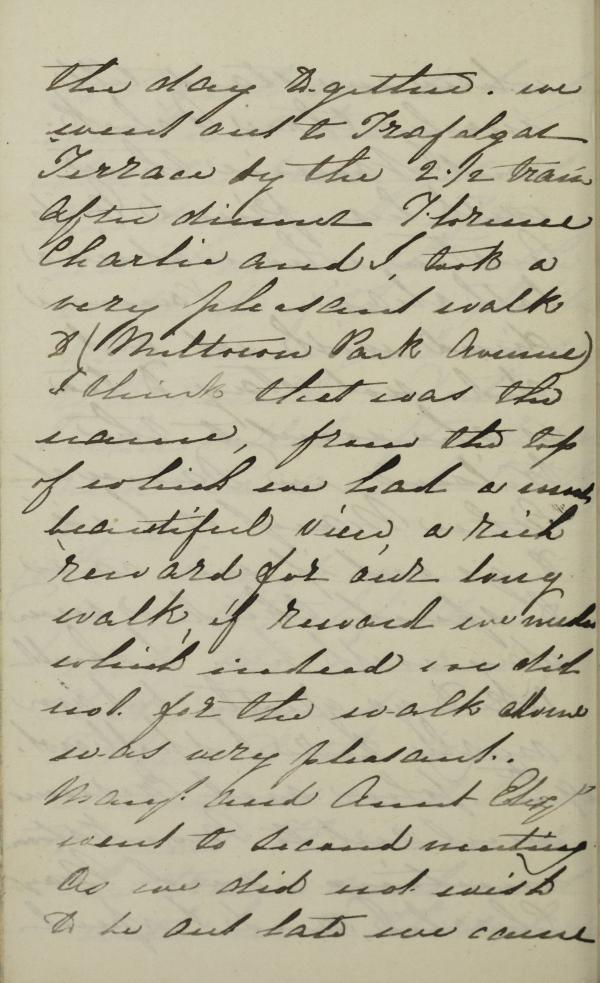 the day together. we
went out to Trafalgar
Terrace by the 2.1/2 train
after dinner Florence
Charlie and I, took a
very pleasant walk
to (Milltown Park Avenue)
I think that was the
name, from the top
of which we had a most
beautiful view, a rich
reward for our long
walk, if reward we needed
which indeed we did
not. for the walk alone
was very pleasant.
and Aunt Elizth
went to second meeting
As we did not wish
to be out late we came